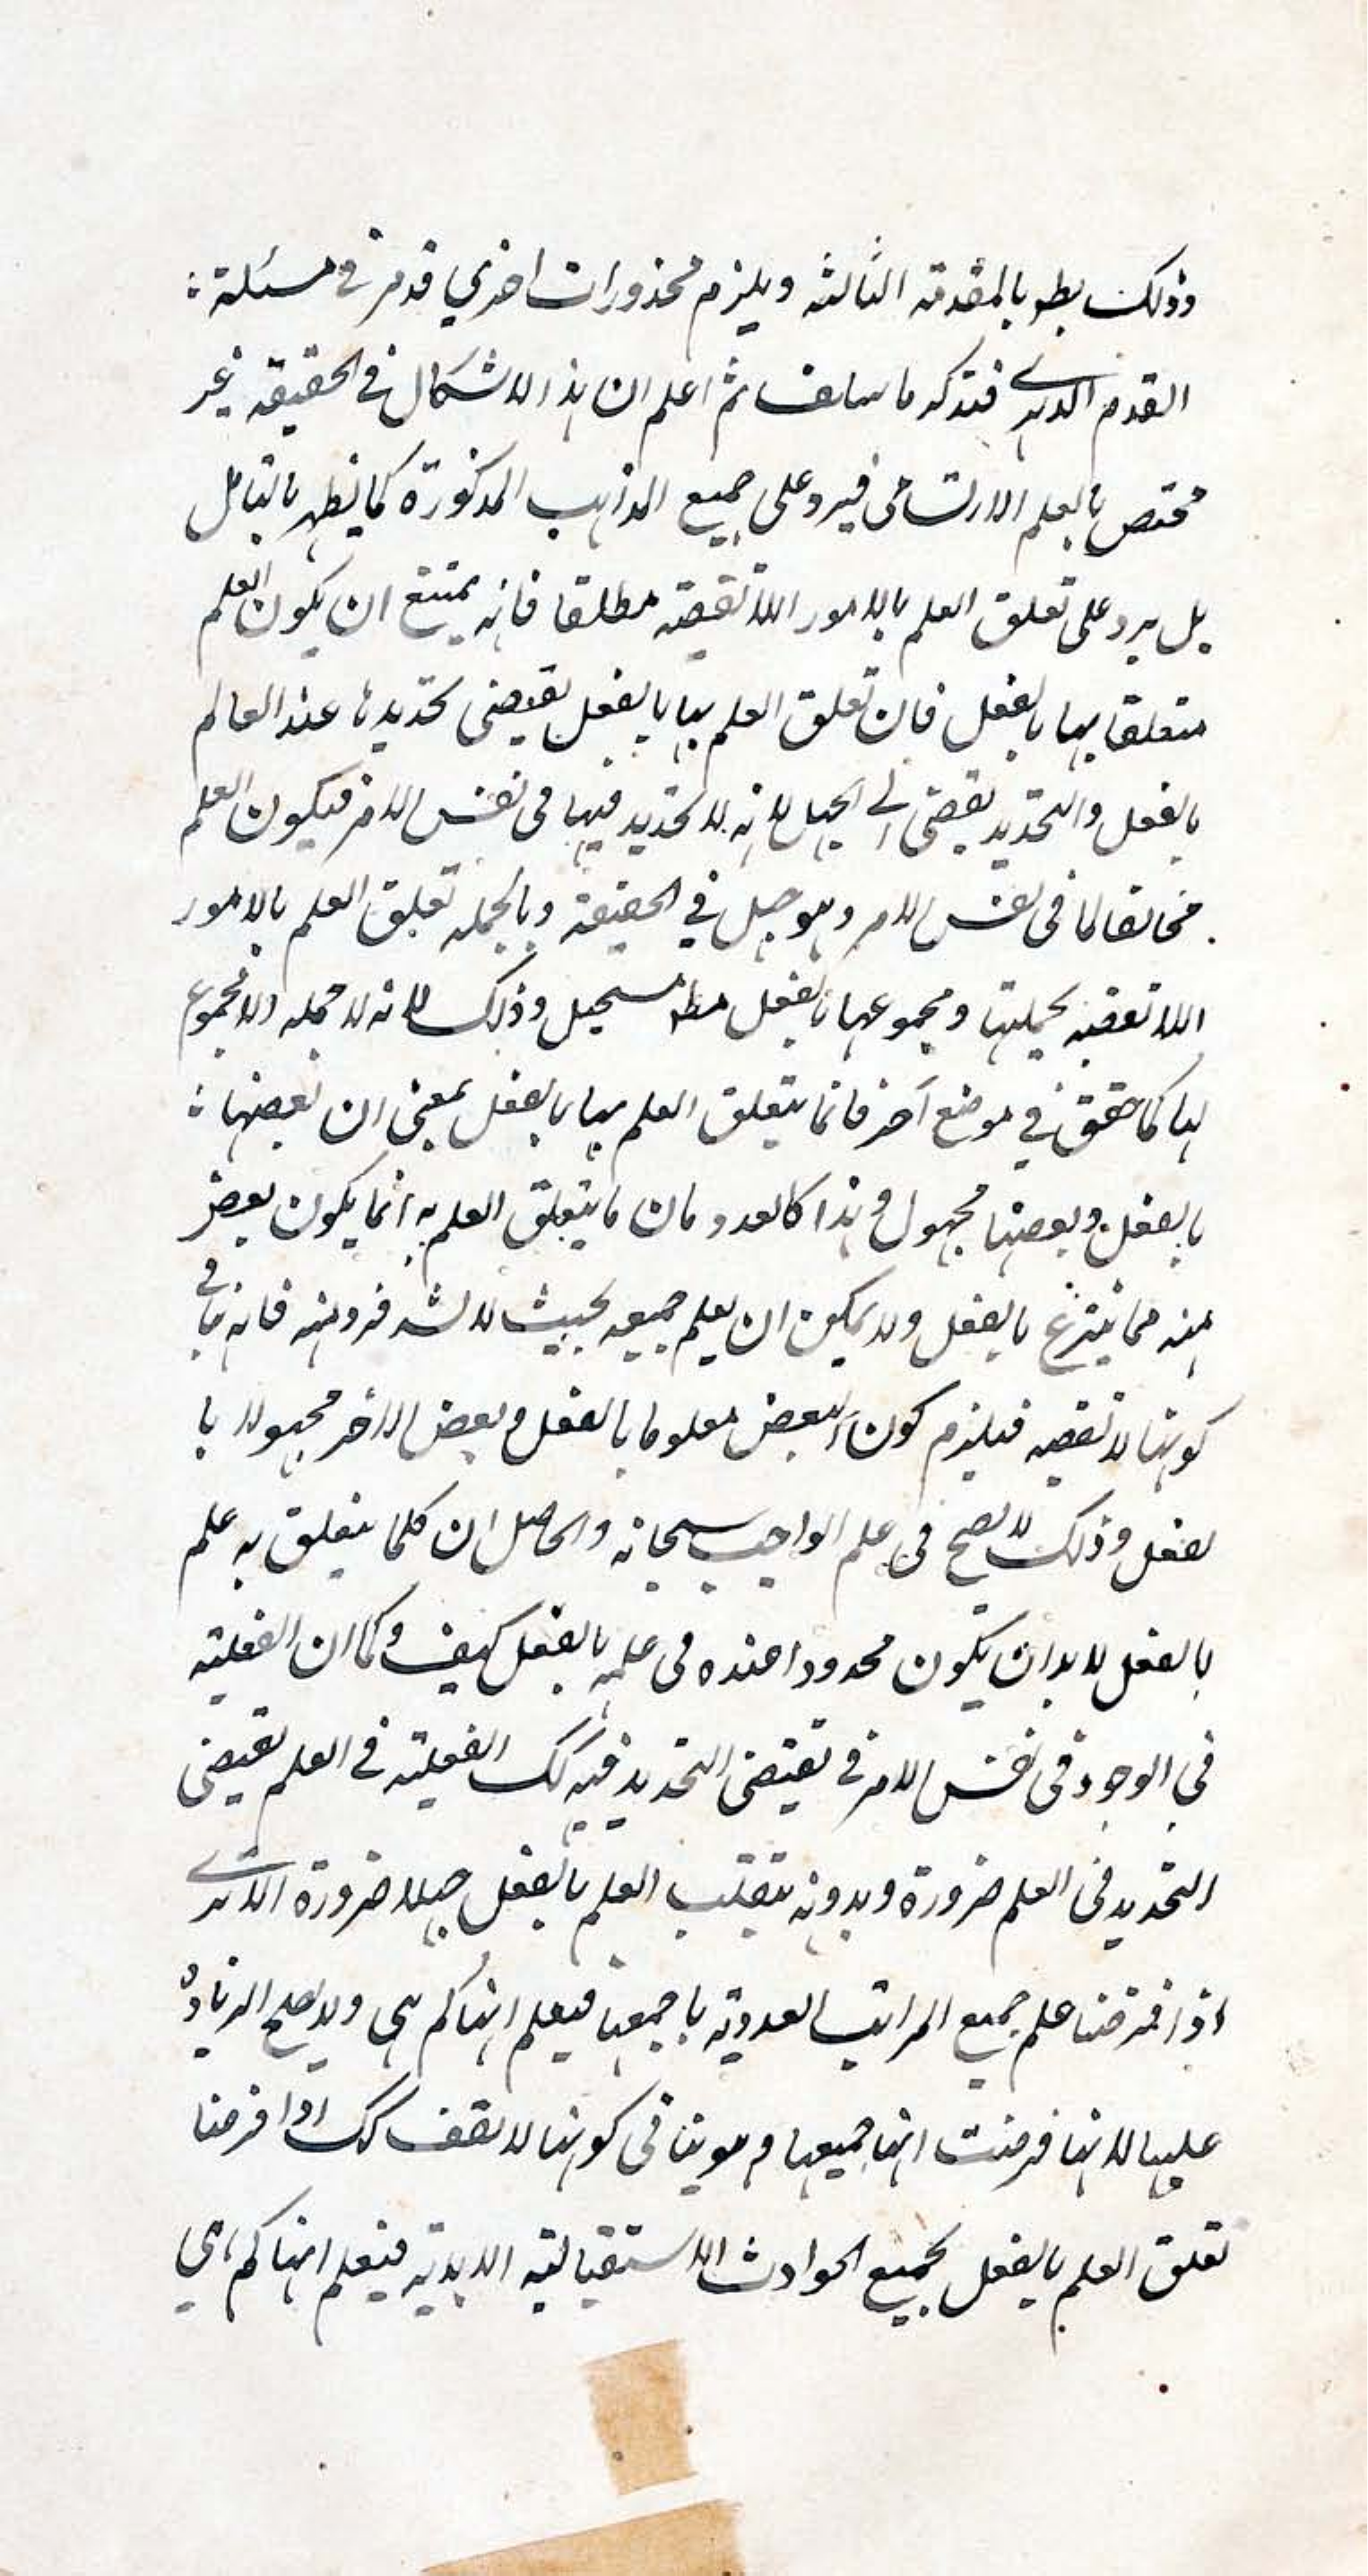 وذلك بط بالمقدمة الثالثه ويلزم محذورات اخرى قد مر فى مسئلة
القدم الدهرى فتذكر ما سلف ثم اعلم ان هذا الاشكال فى الحقيقة غير
مختص بالعلم الارتسامى فيرد على جميع المذاهب المذكورة كما يظهر بالتامل
بل يرد على تعلق العلم بالامور اللاتقفية مطلقا فانه يمتنع ان يكون العلم
متعلقا بها بالفعل فان تعلق العلم بها بالفعل يقتضى تحديدها عند العالم
بالفعل والتحديد يفضى الى الجهل لانه لا تحديد فيها فى نفس الامر فيكون العلم
مخالفا لما فى نفس الامر وهو جهل فى الحقيقة وبالجمله تعلق العلم بالامور
اللاتقفية بجملتها ومجموعها بالفعل مط مستحيل وذلك لانه لا جمله ولا مجموع
لها كما حقق فى موضع آخر فانما يتعلق العلم بها بالفعل بمعنى ان بعضها
بالفعل وبعضها مجهول وهذا كالعدد فان ما يتعلق العلم به انما يكون بعض
منه مما ينتزع بالفعل ولا يمكن ان يعلم جميعه بحيث لا يشذ فرد منه فانه ينافى
كونها لا تقفيه فيلزم كون البعض معلوما بالفعل وبعض الاخر مجهولا با
لفعل وذلك لا يصح فى علم الواجب سبحانه والحاصل ان كلما يتعلق به علم
بالفعل لا بد ان يكون محدودا عنده فى علمه بالفعل كيف وكما ان الفعلية
فى الوجود فى نفس الامر يقتضى التحديد فيه كك الفعلية فى العلم يقتضى
التحديد فى العلم ضرورة وبدونه ينقلب العلم بالفعل جهلا ضرورة الا ترى
اذا فرضنا علم جميع المراتب العددية باجمعها فيعلم انها كم هى ولا يصلح الزيادة
عليها لانها فرضت انها جميعها وهو ينافى كونها لا تقف كك اذا فرضنا
تعلق العلم بالفعل بجميع الحوادث الاستقبالية الابدية فيعلم انها كم هى